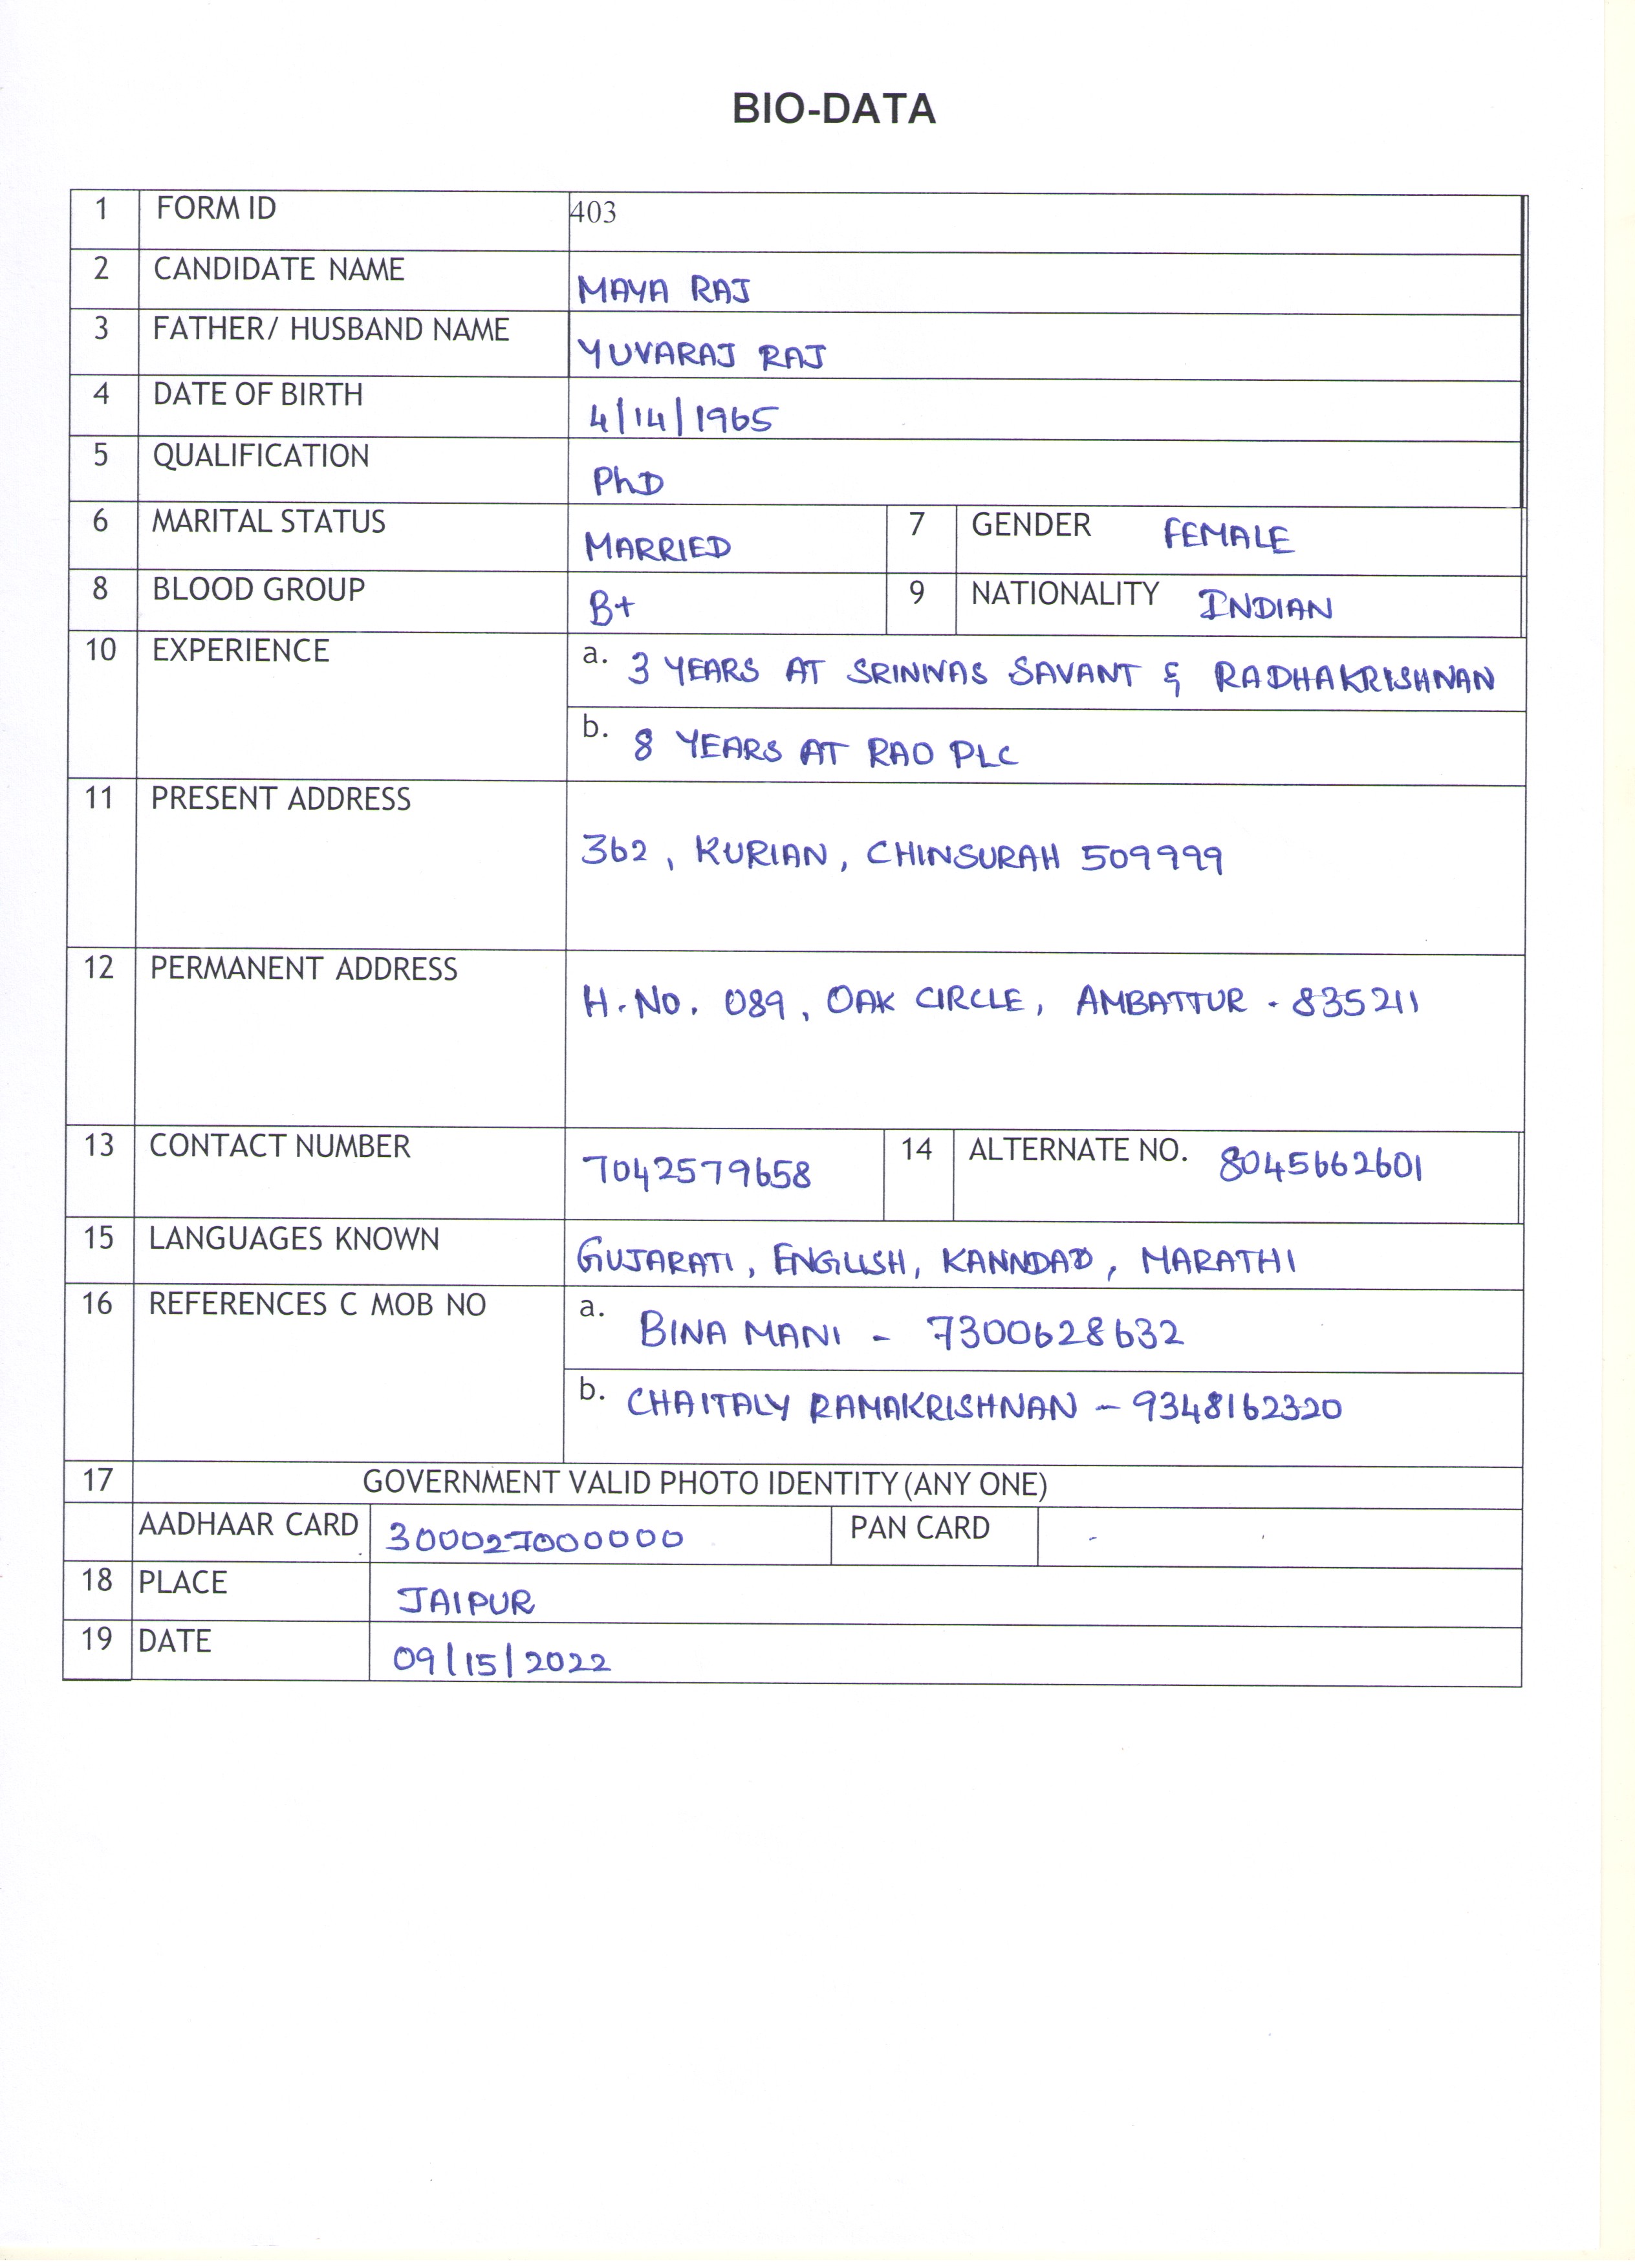 BIO-DATA
1 FORM ID 403
2 CANDIDATE NAME MAYA RAJ
3 FATHER/ HUSBAND NAME YUVARAJ RAJ
4 DATE OF BIRTH 4/14/1965
5 QUALIFICATION PhD
6 MARITAL STATUS MARRIED 7 GENDER FEMALE
8 BLOOD GROUP B+ 9 NATIONALITY INDIAN
10 EXPERIENCE a. 3 YEARS AT SRINIVAS SAVANT & RADHAKRISHNAN
b. 8 YEARS AT RAO PLC
11 PRESENT ADDRESS
362, KURIAN, CHINSURAH 509999
12 PERMANENT ADDRESS
H.NO. 089, OAK CIRCLE, AMBATTUR - 835211
13 CONTACT NUMBER 7042579658 14 ALTERNATE NO. 8045662601
15 LANGUAGES KNOWN GUJARATI, ENGLISH, KANNDAD, MARATHI
16 REFERENCES C MOB NO a. BINA MANI - 7300628632
b. CHAITALY RAMAKRISHNAN - 9348162320
17 GOVERNMENT VALID PHOTO IDENTITY (ANY ONE)
AADHAAR CARD 300027000000 PAN CARD -
18 PLACE JAIPUR
19 DATE 09/15/2022